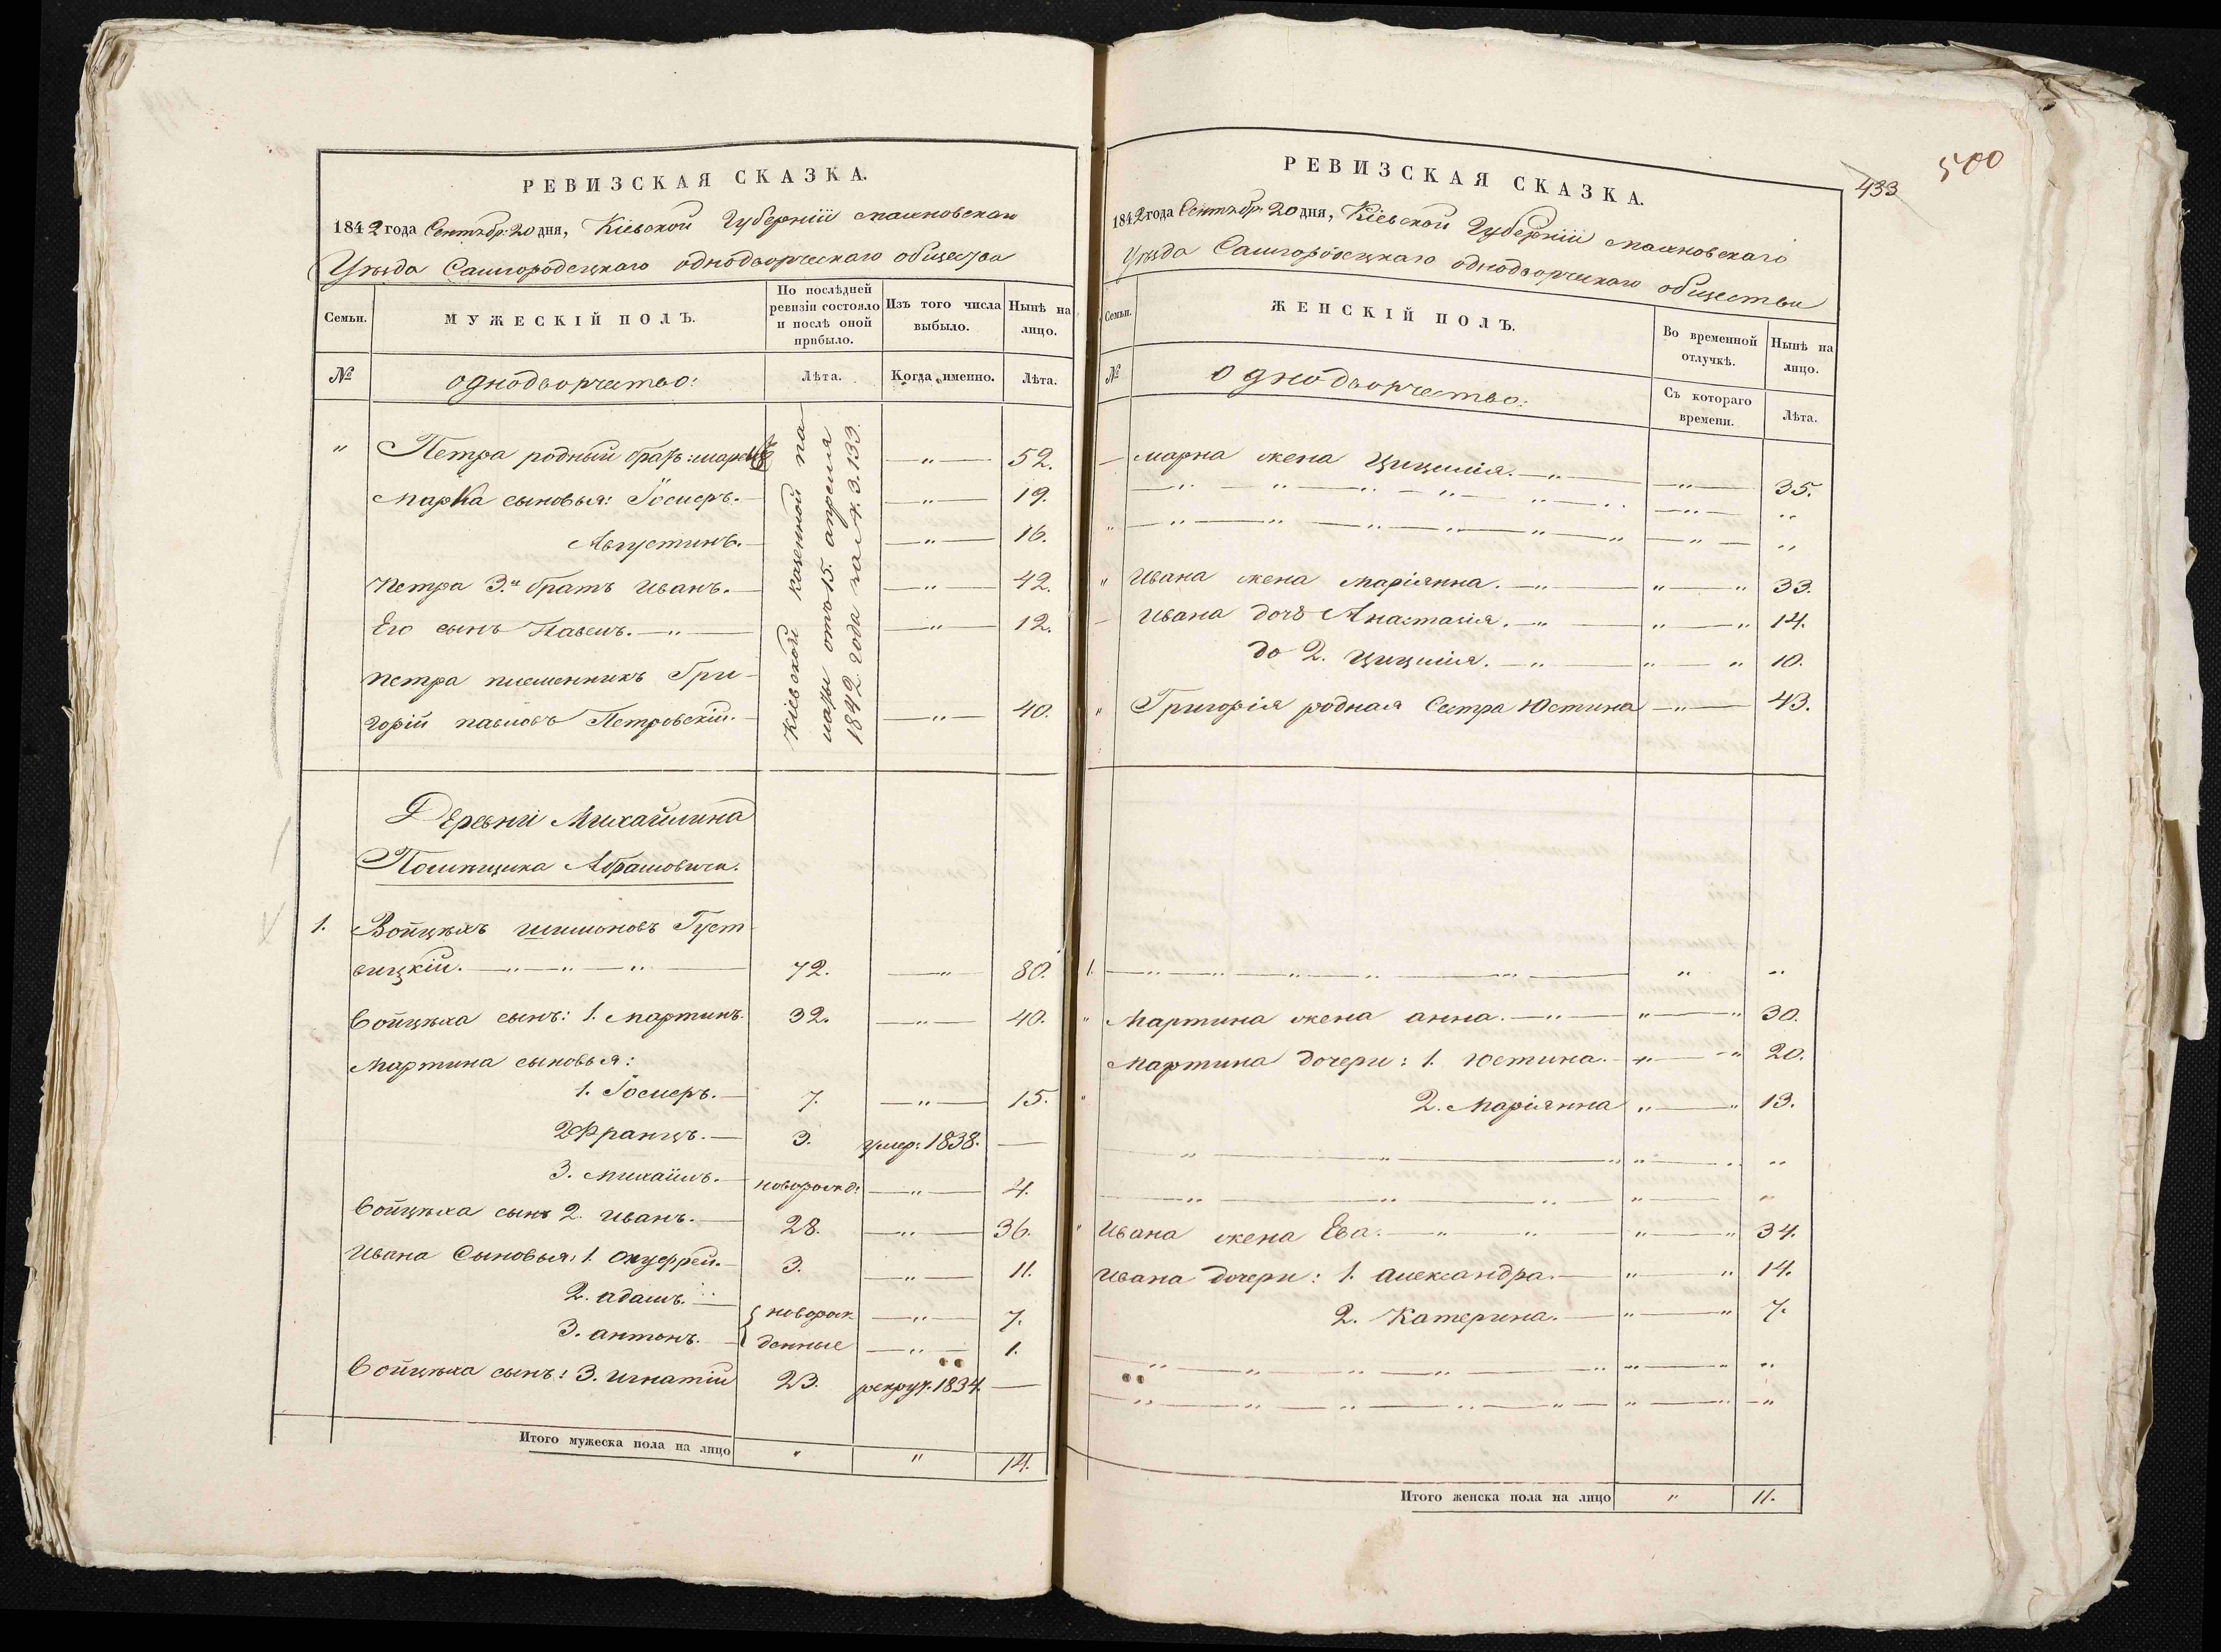 РЕВИЗСКАЯ СКАЗКА.
1842 года Сентябр: 20 дня, Кіевской Губерніи Махновскаго
Уѣзда Самгородецкаго однодворческаго общества
Семьи.
МУЖЕСКІЙ ПОЛЪ.
По послѣдней
ревизіи состояло
и послѣ оной
прибыло.
Изъ того числа
выбыло.
Нынѣ на
лицо.
№
однодворчество:
Лѣта.
Когда именно.
Лѣта.
" Петра родный братъ: Марко — " — 52.
Марка сыновья: Іосиеръ. — " — 19.
Августинъ. — " — 16.
Петра 3.й братъ Иванъ. — " — 42.
Его сынъ Павелъ. — " — 12.
Петра племенникъ Гри-
горій Павловъ Петровскій. — " — 40.
Кіевской казенной па
латы отъ 15. апреля
1842. года за № 3.133.
Деревни Михайлина
Помѣщика Абрамовича.
1. Войцѣхъ Шимоновъ Густ
вицкій. — " — " — " — 72. — " 80.
Войцѣха сынъ: 1. Мартинъ. 32. — " — 40.
Мартина сыновья:
1. Іосиеръ. — 7. — " — 15.
2 Францъ. — 3. умер: 1838. —
3. Михаилъ. — новорожд: — " — 4.
Войцѣха сынъ 2. Иванъ. — 28. — " — 36.
Ивана Сыновья: 1. Онуфрей. — 3. — " — 11.
2. адамъ. — новорож — " — 7.
3. антонъ. — денные — " — 1.
Войцѣха сынъ: 3. Игнатій 23. рекрут. 1834. —
Итого мужеска пола на лицо " " 14.
433
500
РЕВИЗСКАЯ СКАЗКА.
1842 года Сентябр. 20 дня, Кіевской Губерніи Махновскаго
Уѣзда Самгородецкаго однодворческаго общества
Семьи.
ЖЕНСКІЙ ПОЛЪ.
Во временной
отлучкѣ.
Нынѣ на
лицо.
№
Однодворчество:
Съ котораго
времени.
Лѣта.
— Марка жена Цицилія. — " — " — 35.
" Ивана жена Маріянна. — " — " — " 33.
— Ивана дочь Анастасія. — " — " — " 14.
до 2. Цицилія. — " — " — " 10.
" Григорія родная Сестра Юстина — " — 43.
1. — " — " — " — " — " "
" Мартина жена анна. — " — " — " 30.
Мартина дочери: 1. Юстина. — " — " 20.
" 2. Маріянна " — " 13.
" Ивана жена Ева. — " — " — " 34.
Ивана дочери: 1. александра. — " — " 14.
2. Катерина. — " — " 7.
Итого женска пола на лицо " 11.